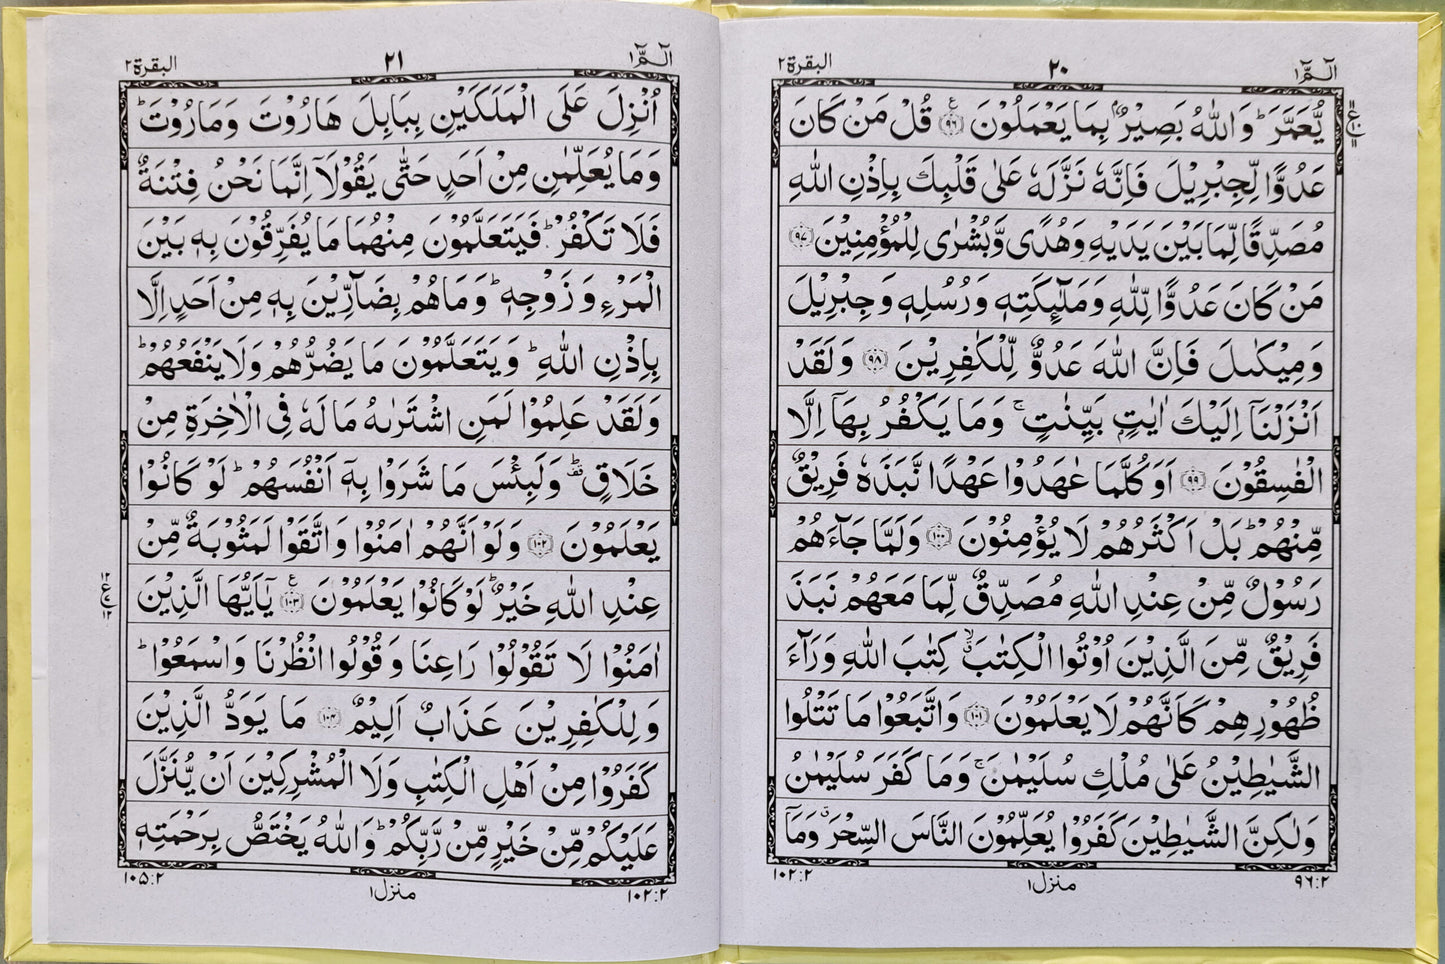 الٓمّٓ ١ ٢٠ البقرة ٢
يُّعَمَّرَ ؕ وَاللّٰهُ بَصِيْرٌۢ بِمَا يَعْمَلُوْنَ ﴿۹۶﴾ قُلْ مَنْ كَانَ
عَدُوًّا لِّجِبْرِيْلَ فَاِنَّهٗ نَزَّلَهٗ عَلٰى قَلْبِكَ بِاِذْنِ اللّٰهِ
مُصَدِّقًا لِّمَا بَيْنَ يَدَيْهِ وَهُدًى وَّبُشْرٰى لِلْمُؤْمِنِيْنَ ﴿۹۷﴾
مَنْ كَانَ عَدُوًّا لِّلّٰهِ وَمَلٰٓئِكَتِهٖ وَرُسُلِهٖ وَجِبْرِيْلَ
وَمِيْكٰىلَ فَاِنَّ اللّٰهَ عَدُوٌّ لِّلْكٰفِرِيْنَ ﴿۹۸﴾ وَلَقَدْ
اَنْزَلْنَاۤ اِلَيْكَ اٰيٰتٍۭ بَيِّنٰتٍ ۚ وَمَا يَكْفُرُ بِهَاۤ اِلَّا
الْفٰسِقُوْنَ ﴿۹۹﴾ اَوَكُلَّمَا عٰهَدُوْا عَهْدًا نَّبَذَهٗ فَرِيْقٌ
مِّنْهُمْ ؕ بَلْ اَكْثَرُهُمْ لَا يُؤْمِنُوْنَ ﴿۱۰۰﴾ وَلَمَّا جَآءَهُمْ
رَسُوْلٌ مِّنْ عِنْدِ اللّٰهِ مُصَدِّقٌ لِّمَا مَعَهُمْ نَبَذَ
فَرِيْقٌ مِّنَ الَّذِيْنَ اُوْتُوا الْكِتٰبَ ۙ كِتٰبَ اللّٰهِ وَرَآءَ
ظُهُوْرِهِمْ كَاَنَّهُمْ لَا يَعْلَمُوْنَ ﴿۱۰۱﴾ وَاتَّبَعُوْا مَا تَتْلُوا
الشَّيٰطِيْنُ عَلٰى مُلْكِ سُلَيْمٰنَ ۚ وَمَا كَفَرَ سُلَيْمٰنُ
وَلٰكِنَّ الشَّيٰطِيْنَ كَفَرُوْا يُعَلِّمُوْنَ النَّاسَ السِّحْرَ ۙ وَمَاۤ
۹۶:۲ منزل ١ ١٠٢:٢
الٓمّٓ ١ ٢١ البقرة ٢
اُنْزِلَ عَلَى الْمَلَكَيْنِ بِبَابِلَ هَارُوْتَ وَمَارُوْتَ ؕ
وَمَا يُعَلِّمٰنِ مِنْ اَحَدٍ حَتّٰى يَقُوْلَاۤ اِنَّمَا نَحْنُ فِتْنَةٌ
فَلَا تَكْفُرْ ؕ فَيَتَعَلَّمُوْنَ مِنْهُمَا مَا يُفَرِّقُوْنَ بِهٖ بَيْنَ
الْمَرْءِ وَزَوْجِهٖ ؕ وَمَا هُمْ بِضَآرِّيْنَ بِهٖ مِنْ اَحَدٍ اِلَّا
بِاِذْنِ اللّٰهِ ؕ وَيَتَعَلَّمُوْنَ مَا يَضُرُّهُمْ وَلَا يَنْفَعُهُمْ ؕ
وَلَقَدْ عَلِمُوْا لَمَنِ اشْتَرٰىهُ مَا لَهٗ فِى الْاٰخِرَةِ مِنْ
خَلَاقٍ ۛؕ وَلَبِئْسَ مَا شَرَوْا بِهٖۤ اَنْفُسَهُمْ ؕ لَوْ كَانُوْا
يَعْلَمُوْنَ ﴿۱۰۲﴾ وَلَوْ اَنَّهُمْ اٰمَنُوْا وَاتَّقَوْا لَمَثُوْبَةٌ مِّنْ
عِنْدِ اللّٰهِ خَيْرٌ ؕ لَوْ كَانُوْا يَعْلَمُوْنَ ﴿۱۰۳﴾ يٰۤاَيُّهَا الَّذِيْنَ
اٰمَنُوْا لَا تَقُوْلُوْا رَاعِنَا وَقُوْلُوا انْظُرْنَا وَاسْمَعُوْا ؕ
وَلِلْكٰفِرِيْنَ عَذَابٌ اَلِيْمٌ ﴿۱۰۴﴾ مَا يَوَدُّ الَّذِيْنَ
كَفَرُوْا مِنْ اَهْلِ الْكِتٰبِ وَلَا الْمُشْرِكِيْنَ اَنْ يُّنَزَّلَ
عَلَيْكُمْ مِّنْ خَيْرٍ مِّنْ رَّبِّكُمْ ؕ وَاللّٰهُ يَخْتَصُّ بِرَحْمَتِهٖ
١٠٢:٢ منزل ١ ١٠٥:٢